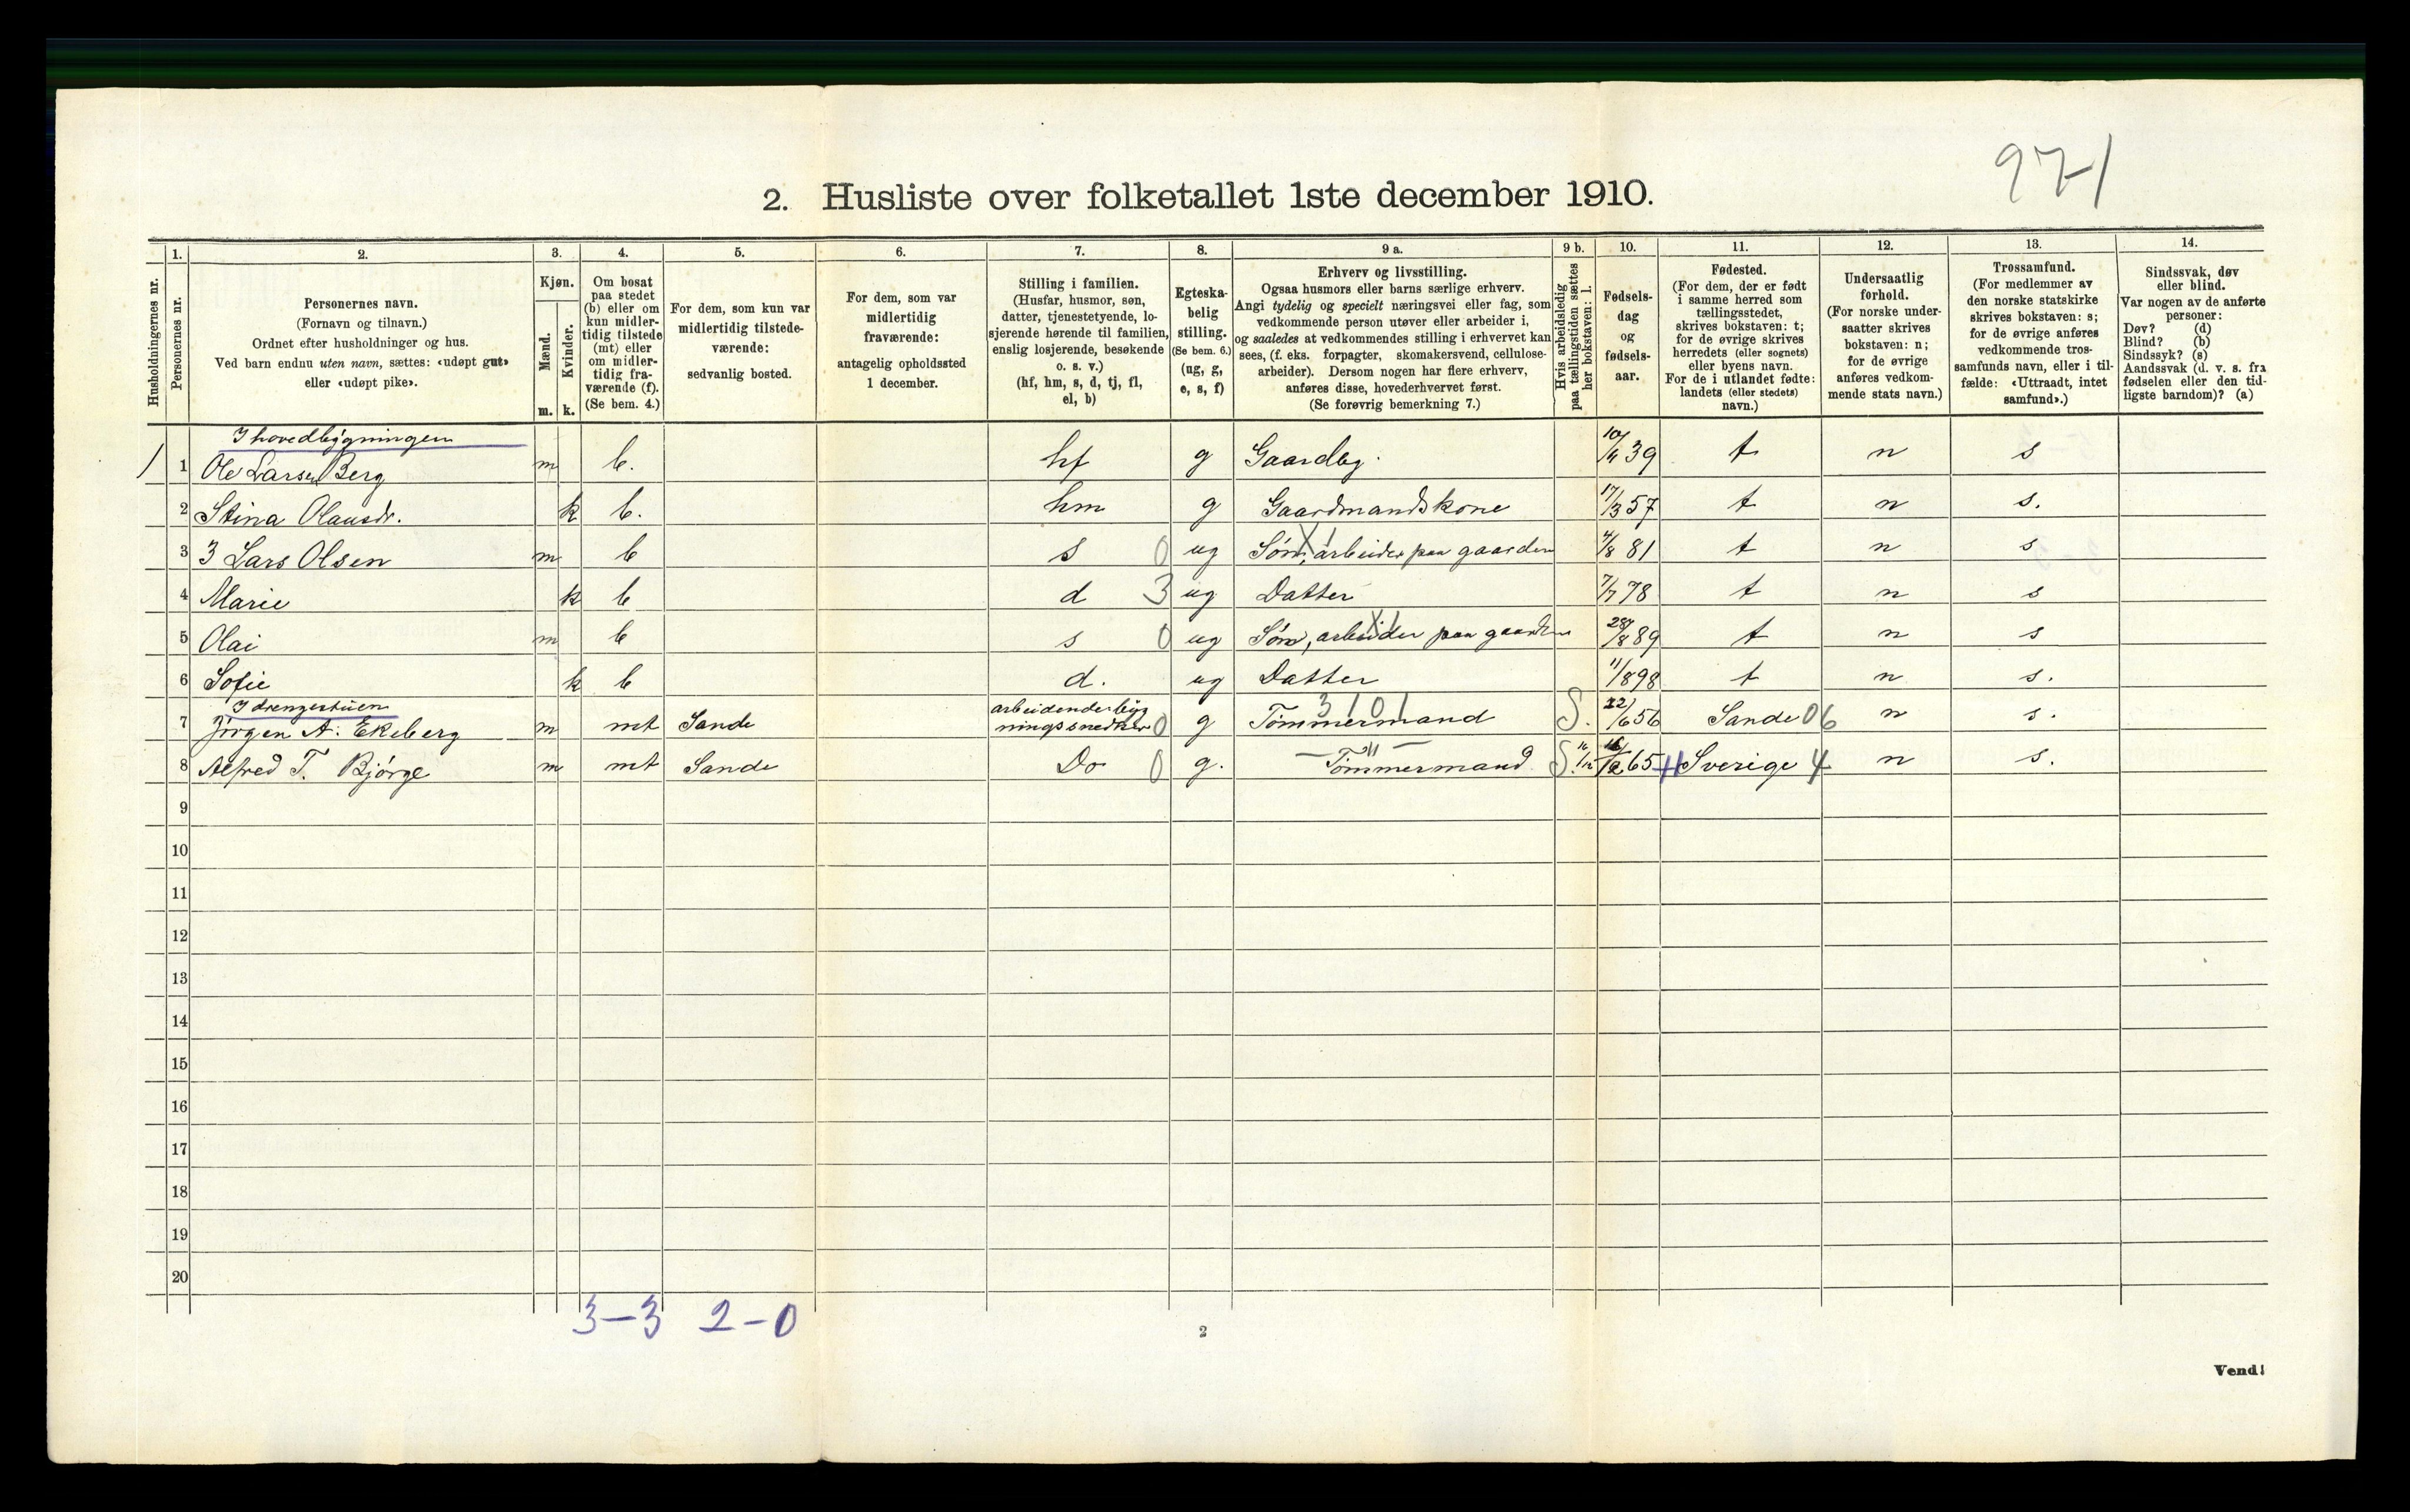 971
2. Husliste over folketallet 1ste december 1910.
Husholdningernes nr.
1.
Personernes nr.
2.
Personernes navn.
(Fornavn og tilnavn.)
Ordnet efter husholdninger og hus.
Ved barn endnu uten navn, sættes: «udøpt gut»
eller «udøpt pike».
3.
Kjøn.
Mænd.
Kvinder.
m. k.
4.
Om bosat
paa stedet
(b) eller om
kun midler-
tidig tilstede
(mt) eller
om midler-
tidig fra-
værende (f).
(Se bem. 4.)
5.
For dem, som kun var
midlertidig tilstede-
værende:
sedvanlig bosted.
6.
For dem, som var
midlertidig
fraværende:
antagelig opholdssted
1 december.
7.
Stilling i familien.
(Husfar, husmor, søn,
datter, tjenestetyende, lo-
sjerende hørende til familien,
enslig losjerende, besøkende
o. s. v.)
(hf, hm, s, d, tj, fl,
el, b)
8.
Egteska-
belig
stilling.
(Se bem. 6.)
(ug, g,
e, s, f)
9 a.
Erhverv og livsstilling.
Ogsaa husmors eller barns særlige erhverv.
Angi tydelig og specielt næringsvei eller fag, som
vedkommende person utøver eller arbeider i,
og saaledes at vedkommendes stilling i erhvervet kan
sees, (f. eks. forpagter, skomakersvend, cellulose-
arbeider). Dersom nogen har flere erhverv,
anføres disse, hovederhvervet først.
(Se forøvrig bemerkning 7.)
9 b.
Hvis arbeidsledig
paa tællingstiden sættes
her bokstaven: l.
10.
Fødsels-
dag
og
fødsels-
aar.
11.
Fødested.
(For dem, der er født
i samme herred som
tællingsstedet,
skrives bokstaven: t;
for de øvrige skrives
herredets (eller sognets)
eller byens navn.
For de i utlandet fødte:
landets (eller stedets)
navn.)
12.
Undersaatlig
forhold.
(For norske under-
saatter skrives
bokstaven: n;
for de øvrige
anføres vedkom-
mende stats navn.)
13.
Trossamfund.
(For medlemmer av
den norske statskirke
skrives bokstaven: s;
for de øvrige anføres
vedkommende tros-
samfunds navn, eller i til-
fælde: «Uttraadt, intet
samfund».)
14.
Sindssvak, døv
eller blind.
Var nogen av de anførte
personer:
Døv? (d)
Blind? (b)
Sindssyk? (s)
Aandssvak (d. v. s. fra
fødselen eller den tid-
ligste barndom)? (a)
I hovedbygningen
1 Ole Larsen Berg m b. hf g Gaardbr. 10/4 39 t n s
2 Stina Olausdr. k b. hm g Gaardmandskone 17/3 57 t n s.
3 3 Lars Olsen m b s 0 ug Søn, arbeider paa gaarden 4/8 81 t n s
4 Marie k b d 3 ug Datter 7/7 78 t n s
5 Olai m b s 0 ug Søn, arbeider paa gaarden 28/8 89 t n s
6 Sofie k b d. ug Datter 11/8 98 t n s.
I drengestuen
7 Jörgen A. Ekeberg m mt Sande arbeidende byg
ningssnedker 0 g Tømmermand 3 1 0 1 S. 22/6 56 Sande 06 n s.
8 Alfred T. Bjørge m mt Sande Do 0 g. — " — Tømmermand S. 65 Sverige 4 n s.
9
10
11
12
13
14
15
16
17
18
19
20
3-3 2-0
2
Vend!